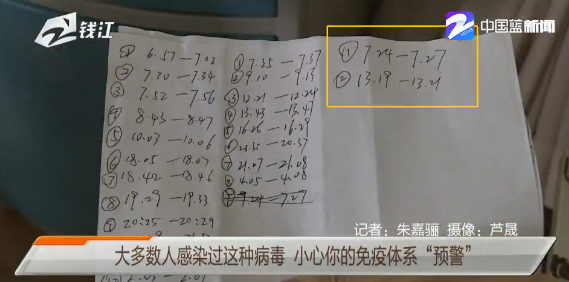 钱江
中国蓝新闻
① 6.57—7.02
② 7.30—7.34
③ 7.52—7.56
④ 8.43—8.47
⑤ 10.03—10.06
⑥ 18.05—18.07
⑦ 18.42—18.46
⑧ 19.29—19.33
⑨ 20:25—20:29
① 7.35—7.37
② 9.10—9.13
③ 12.21—12.24
④ 13.43—13.47
⑤ 16.26—16.29
⑦ 21.07—21.08
⑧ 4.05—4.08
① 7.24—7.27
② 13.19—13.21
记者：朱嘉骊 摄像：芦晟
大多数人感染过这种病毒 小心你的免疫体系“预警”